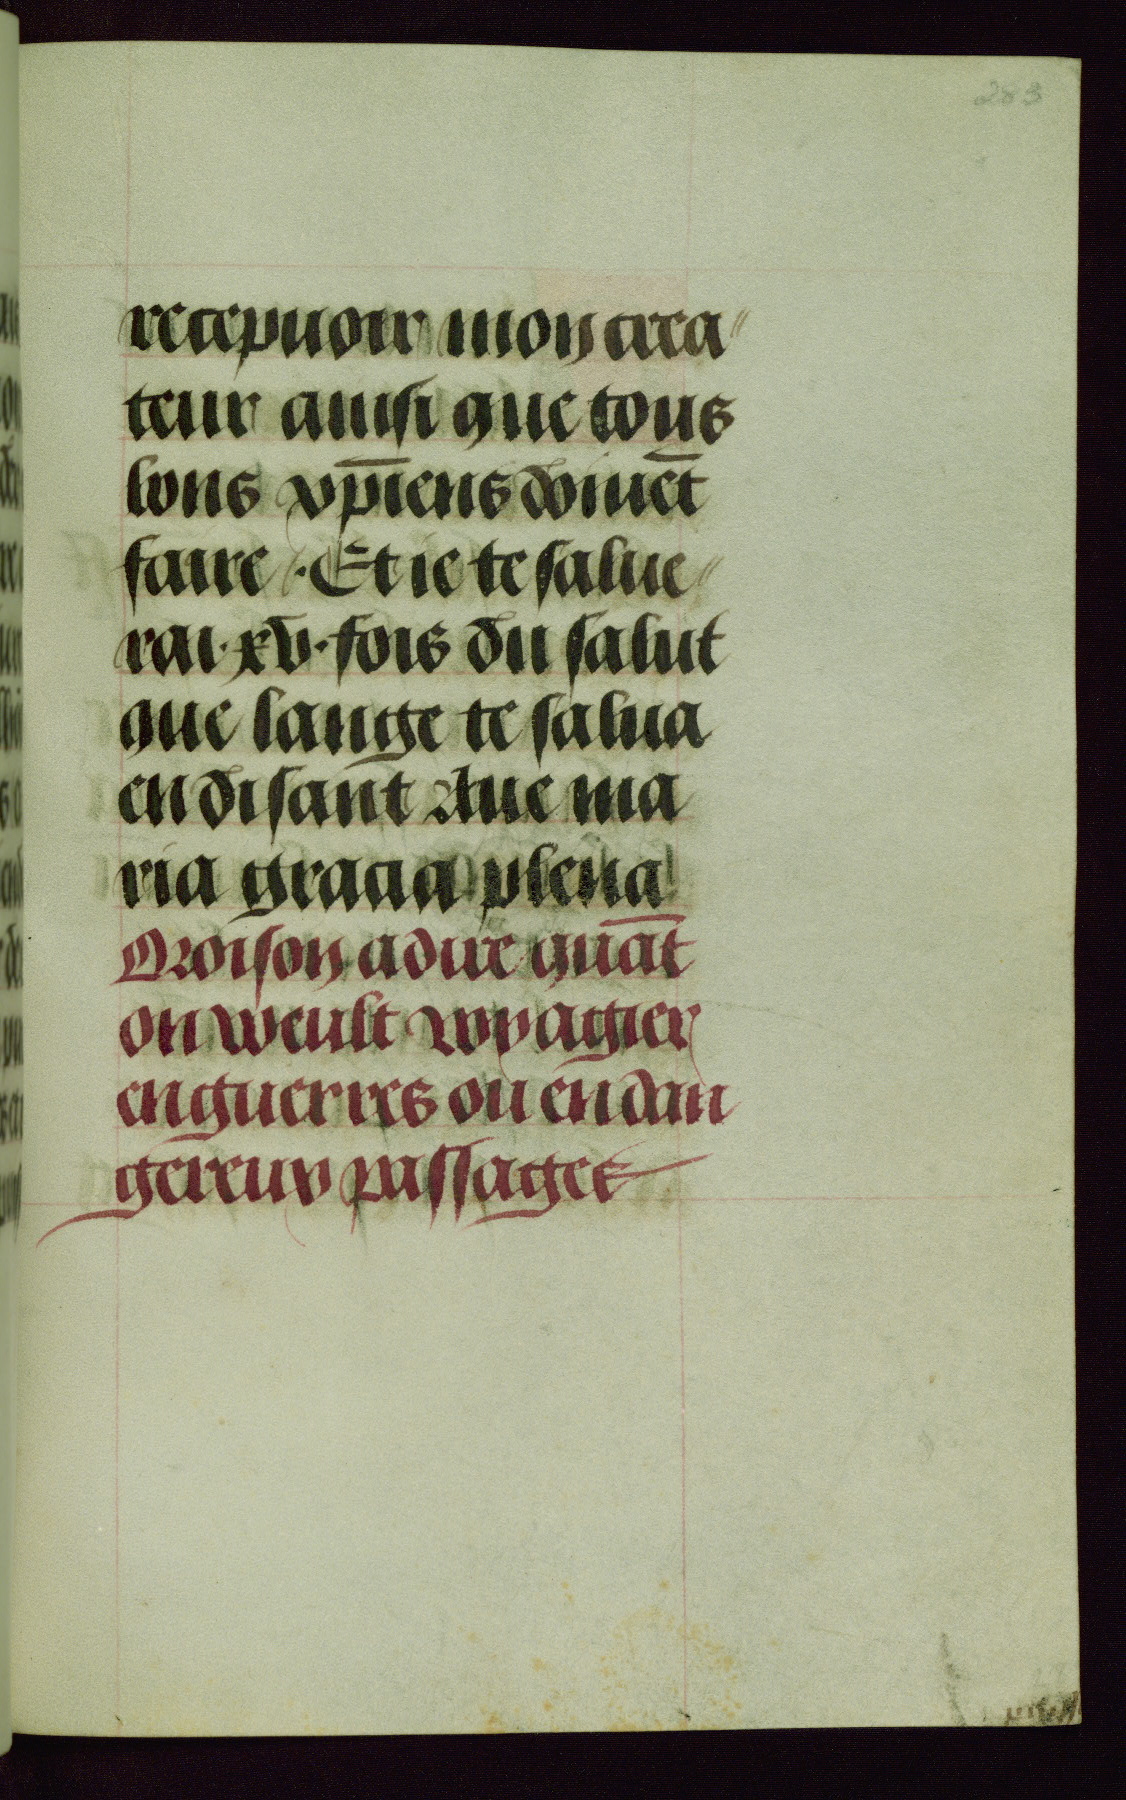 283
recepuoir mon crea
teur ainsi que tous
bons xp̄iens doiuēt
faire · Et ie te salue
rai · xv · fois du salut
que lange te salua
en disant Aue ma
ria gracia plena
Oroison a dire quāt
on weult woyagier
en guerres ou en dan
gereux passages